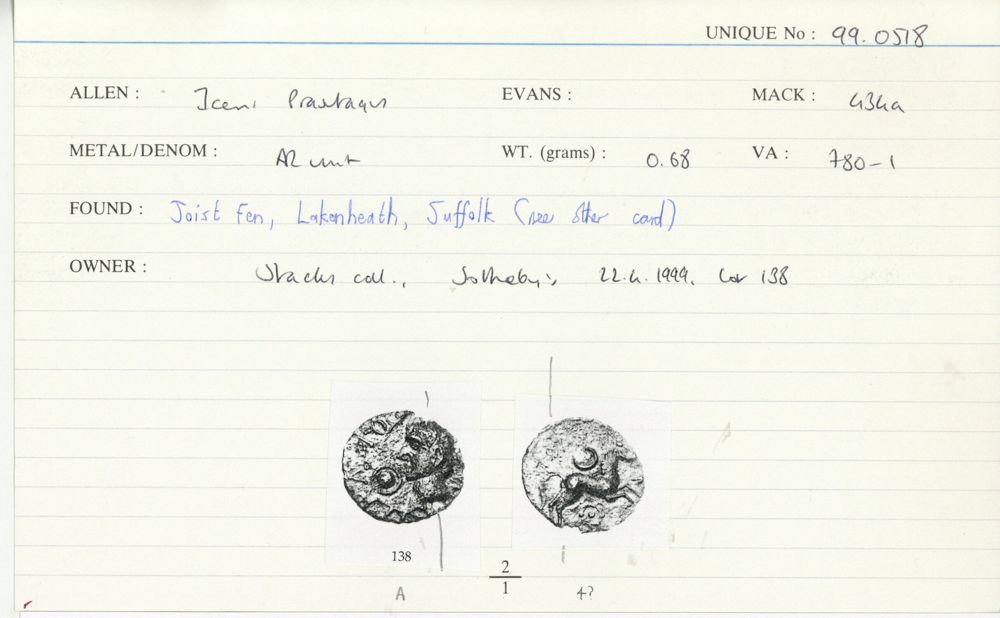 UNIQUE No : 99.0518
ALLEN : Iceni Prasutagus EVANS : MACK : 434a
METAL/DENOM : AR unit WT. (grams) : 0.68 VA : 780-1
FOUND : Joist Fen, Lakenheath, Suffolk (see other card)
OWNER : coll., Sotheby's, 22.4.1999, lot 138
138
2
1
A 4?